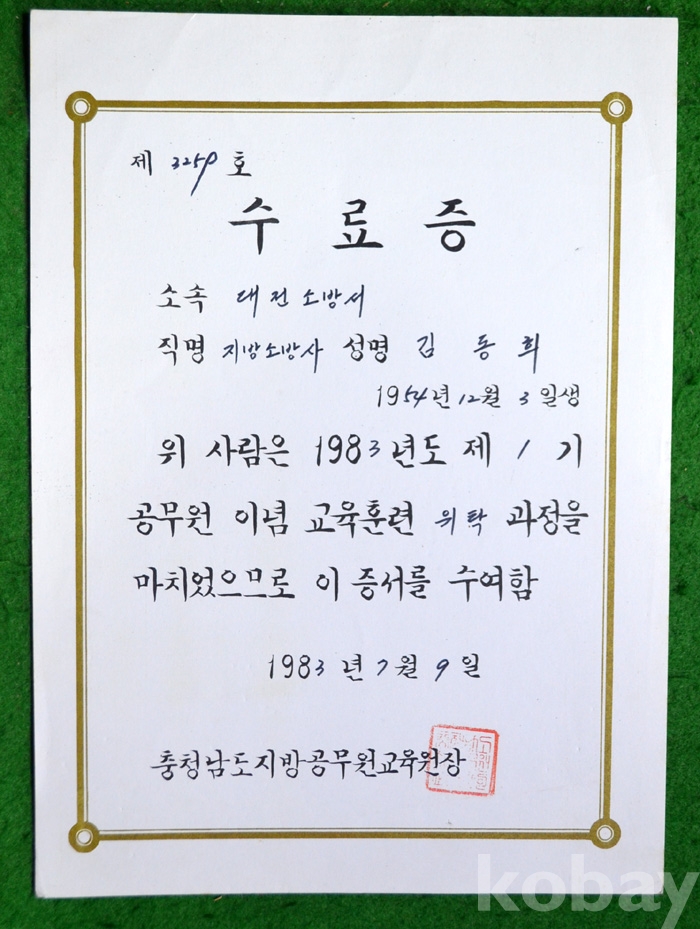 제 3259 호
수 료 증
소속 대전소방서
직명 지방소방사 성명 김 동 희
1954년 12월 3일생
위 사람은 1983년도 제 1 기
공무원 이념 교육훈련 위탁 과정을
마치었으므로 이 증서를 수여함
1983년 7월 9일
충청남도지방공무원교육원장
kobay